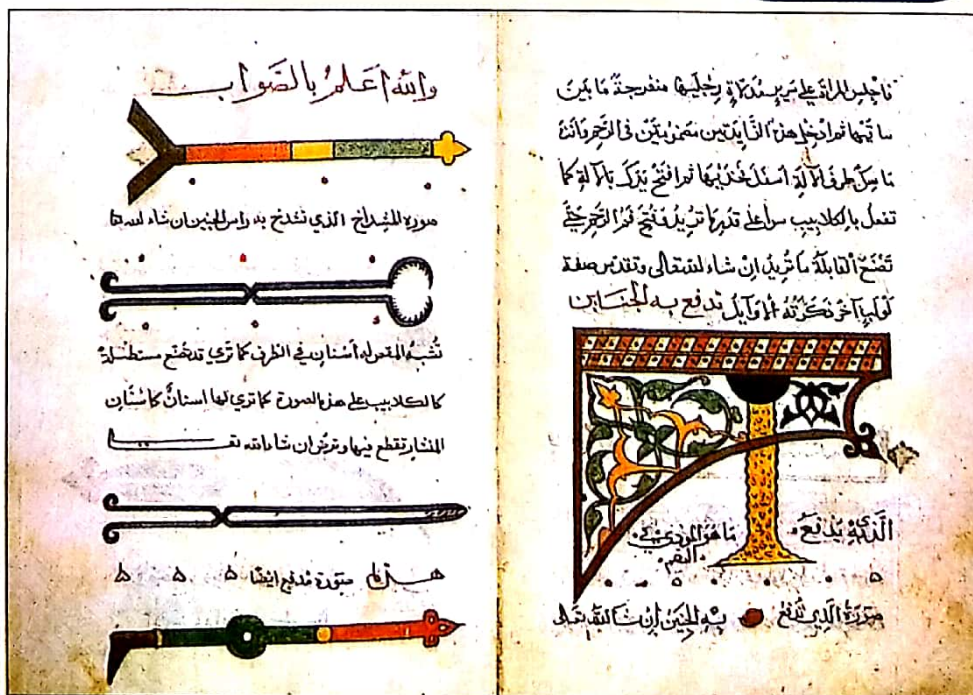 فاجلس المراة على سرير سندلة رجليها منفرجة ما بين
ساقيها ثم ادخل هذه الزايدتين مضمومتين في الرحم وانت
ماسك طرف الالة اسفل فخذيها ثم افتح يدك بالالة كما
تفعل بالكلاليب سوا على قدر ما تريد تفتح فم الرحم حتى
تصنع القابلة ما تريد ان شاء الله تعالى وتقدس صفة
لولب آخر ذكرته الاوايل تدفع به الجنين
الذي يدفع ما هو المودي في
الفم
صورة الذي تدفع به الجنين إن شا الله تعالى
والله أعلم بالصواب
صورة المشداخ الذي تشدخ به راس الجنين ان شاء الله
تشبه المقص له أسنان في الطرف كما تري قد يصنع مستطيلة
كالكلاليب على هذه الصورة كما تري لها اسنان كاسنان
المنشار تقطع فيها وترض ان شاء الله
صورة مدفع ايضا